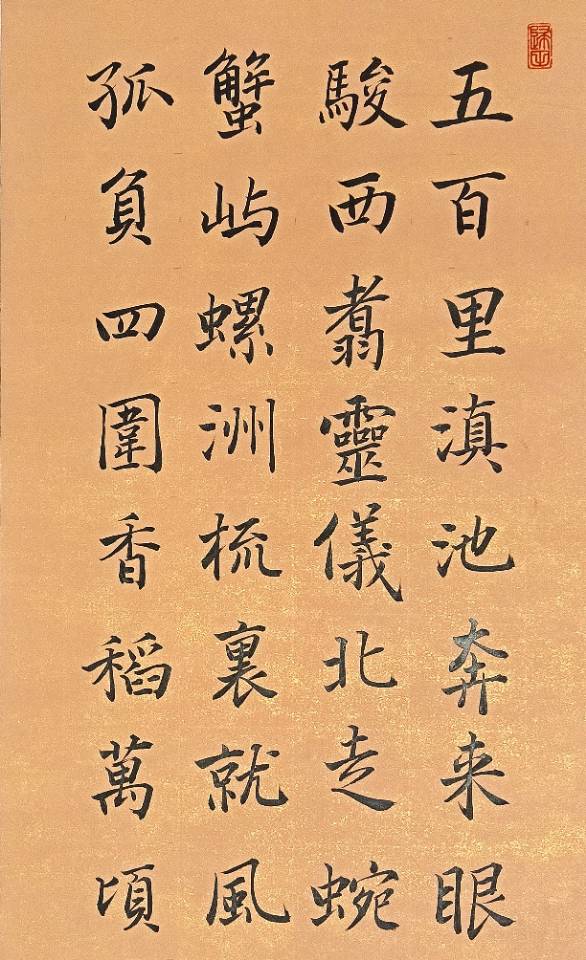 五百里滇池奔来眼
駿西翥靈儀北走蜿
蟹屿螺洲梳裏就風
孤負四圍香稻萬頃